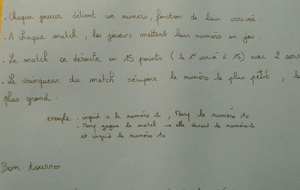 . Chaque joueur détient un numéro, fonction de leur arrivée.
. A chaque match, les joueurs mettent leur numéro en jeu.
. Le match se déroule en 15 points (le 1er arrivé à 15) avec 2
. Le vainqueur du match récupère le numéro le plus petit, le
plus grand.
exemple : a le numéro 10
gagne le match elle devient le numéro
et le numéro 10
Bon tournoi